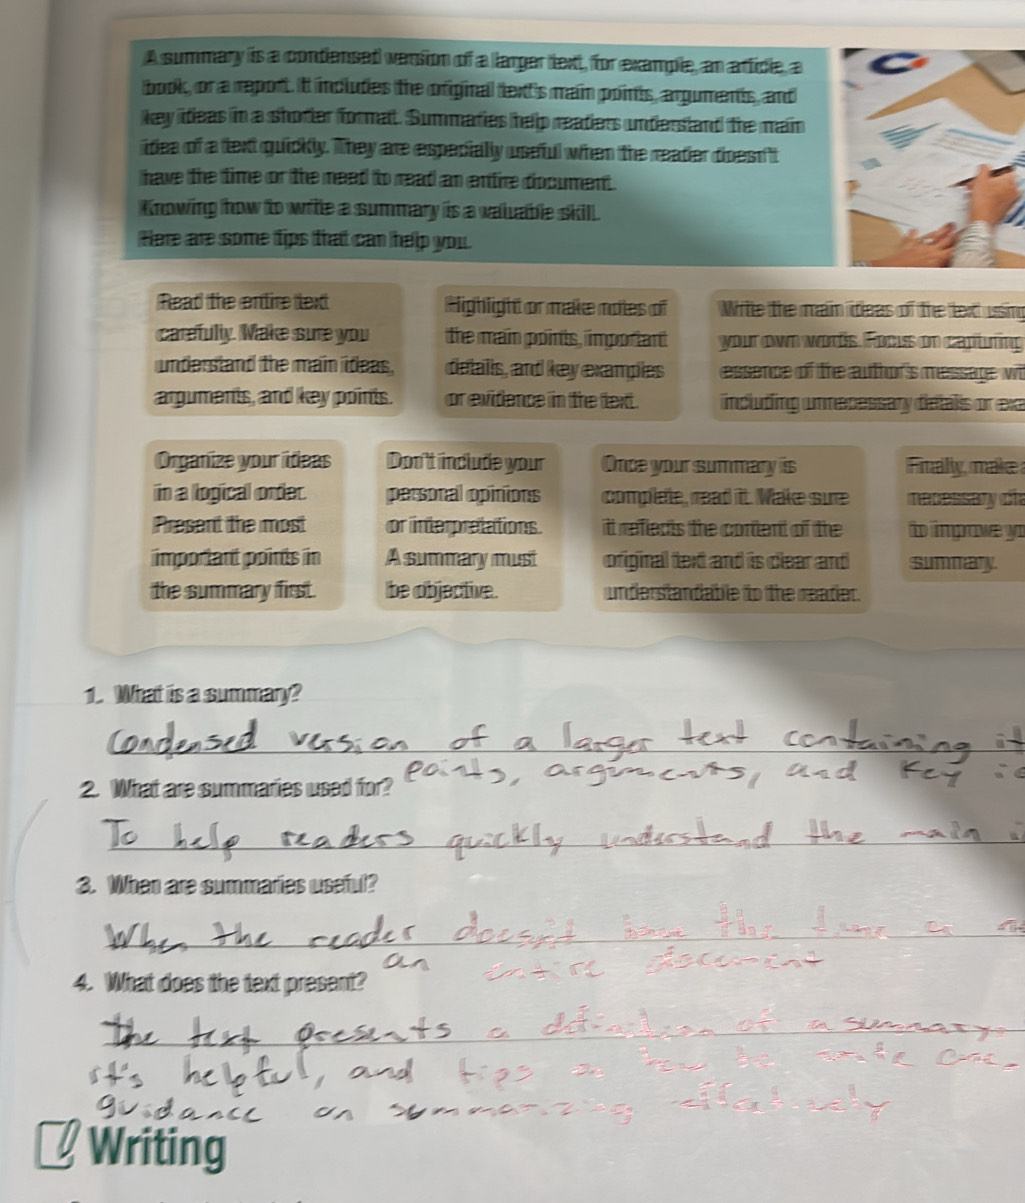 A summary is a condensed version of a larger text, for example, an article, a
book, or a report. It includes the original text's main points, arguments, and
key ideas in a shorter format. Summaries help readers understand the main
idea of a text quickly. They are especially useful when the reader doesn't
have the time or the need to read an entire document.
Knowing how to write a summary is a valuable skill.
Here are some tips that can help you.
Read the entire text
carefully. Make sure you
understand the main ideas,
arguments, and key points.
Highlight or make notes of
the main points, important
details, and key examples
or evidence in the text.
Write the main ideas of the text using
your own words. Focus on capturing
essence of the author's message wit
including unnecessary details or exa
Organize your ideas
in a logical order.
Present the most
important points in
the summary first.
Don't include your
personal opinions
or interpretations.
A summary must
be objective.
Once your summary is
complete, read it. Make sure
it reflects the content of the
original text and is clear and
understandable to the reader.
Finally, make
necessary ch
to improve yo
summary.
1. What is a summary?
Condensed version of a larger text containing it
points, arguments, and key
2. What are summaries used for?
To help readers quickly understand the main
3. When are summaries useful?
When the reader doesn't have the time
an entire document
4. What does the text present?
The text presents a definition of a summary,
it's helpful, and tips on how to write one.
guidance on summarizing effectively
Writing